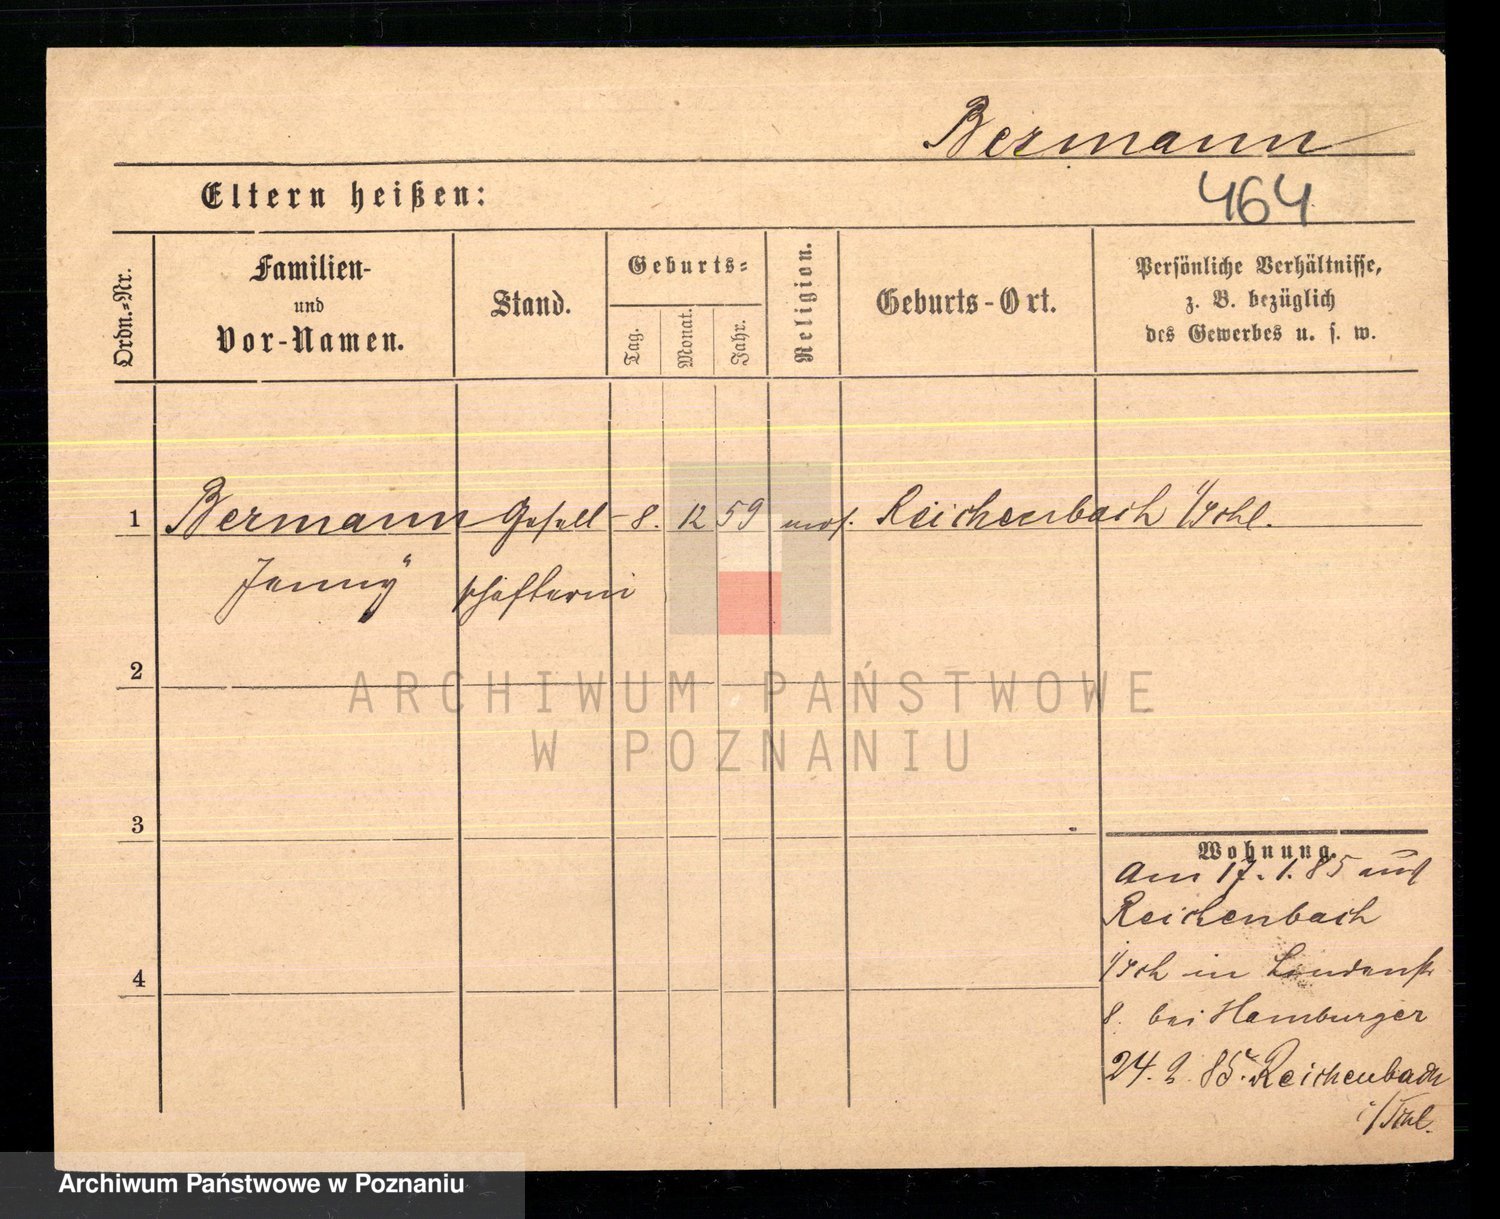 Bermann
Eltern heißen:
464
Ordn.-Nr.
Familien-
und
Vor-Namen.
Stand.
Geburts-
Tag.
Monat.
Jahr.
Religion.
Geburts-Ort.
Persönliche Verhältnisse,
z. B. bezüglich
des Gewerbes u. s. w.
1 Bermann Gesell- 8. 12 59 mos. Reichenbach i/Schl.
Jenny schafterin
2
ARCHIWUM PAŃSTWOWE
W POZNANIU
3
Wohnung.
Am 17.1.85 aus
Reichenbach
i/Sch in Lindenstr
4
8. bei Hamburger
24. 2. 85. Reichenbach
i/Schl.
Archiwum Państwowe w Poznaniu